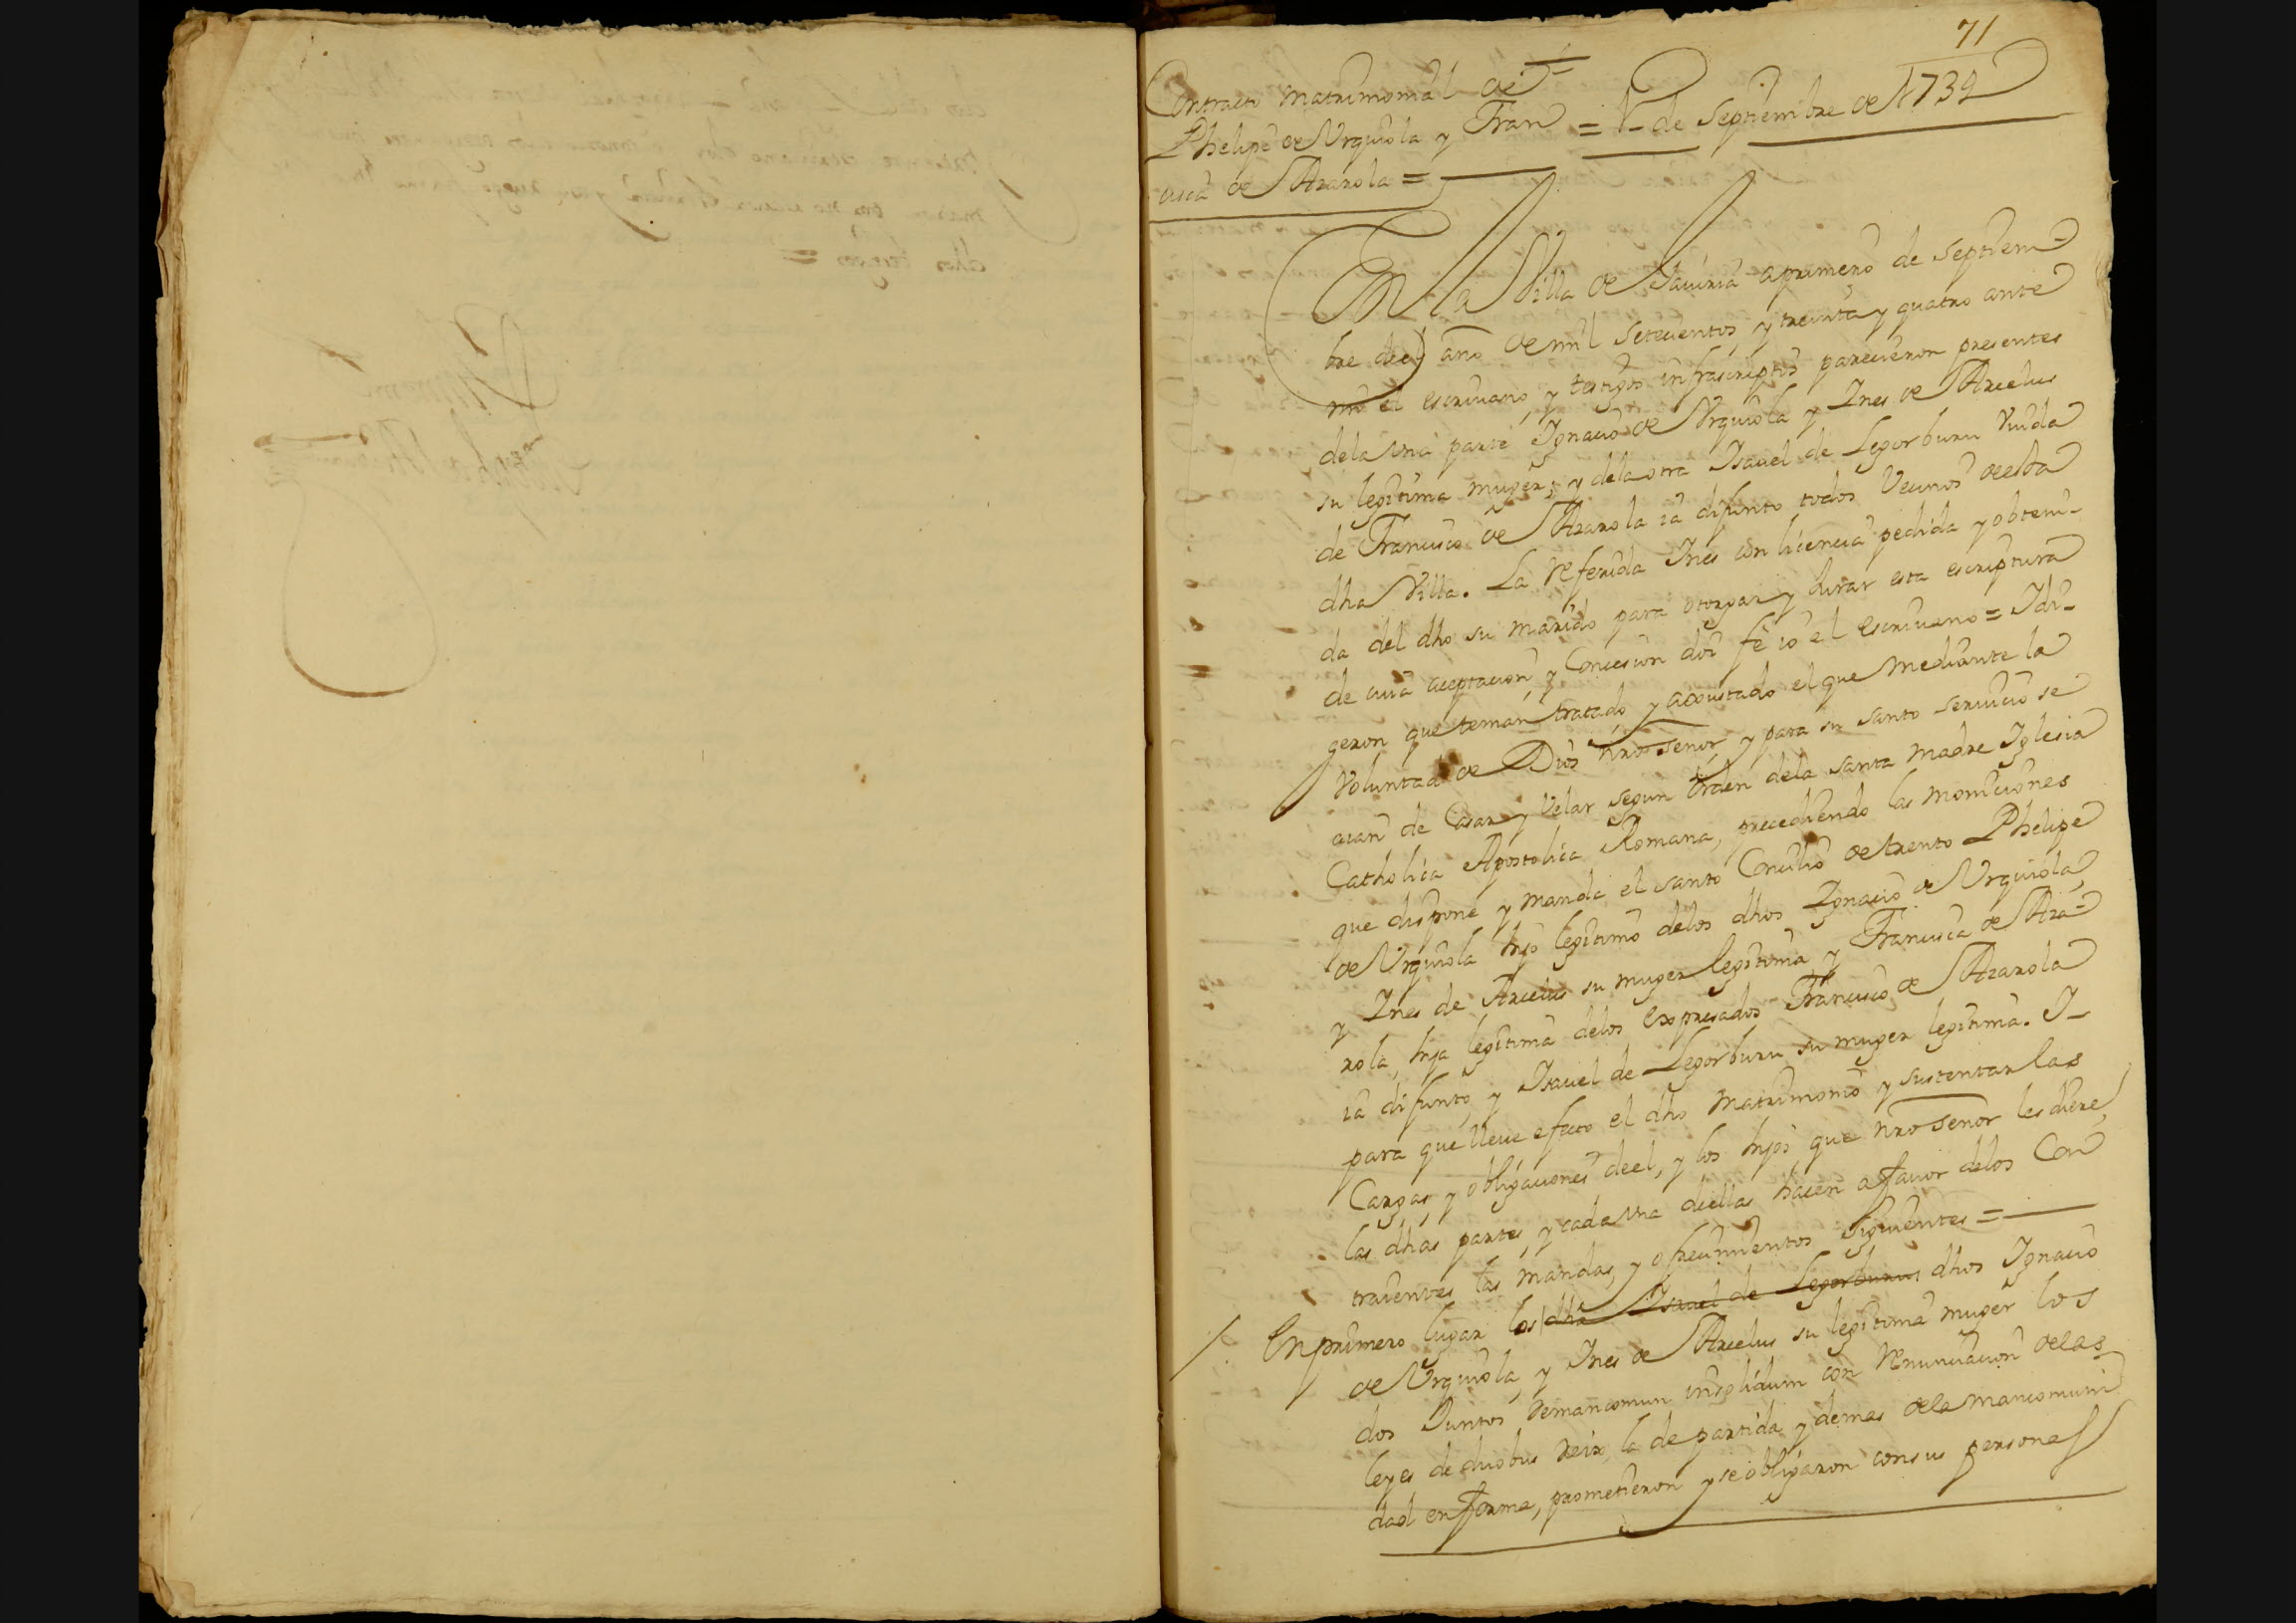 71
Contracto matrimonial de
Phelipe de Vrquiola y Fran = 1 de septiembre de 1734
cisca de Azarola =
En la Villa de Zauria a primero de septiem=
bre del año de mil setecientos, y treinta y quatro ante
mi el escriuano, y testigos infrascriptos parecieron presentes
dela vna parte Ignacio de Vrquiola y Ines de Arcelus
su legitima muger; y dela otra Isauel de Legorburu Viuda
de Francisco de Azarola ia difunto todos Vecinos deesta
dha Villa. La referida Ines con licencia pedida y obteni-
da del dho su marido para otorgar y Iurar esta escriptura
de cuia aceptacion, y Concesion doi fe io el escriuano = I di-
geron que tenian tratado, y acoustado el que mediante la
Voluntad de Dios nro señor, y para su santo seruicio se
aian de Casar y Velar segun orden dela santa madre Iglesia
Catholica Apostolica Romana, precediendo las moniciones
que dispone y manda el santo Concilio de trento Phelipe
de Vrquiola hijo legitimo delos dhos Ignacio de Vrquiola,
y Ines de Arcelus su muger legitima y Francisca de Aza=
rola, hija legitima delos expresados Francisco de Azarola
ia difunto, y Isauel de Legorburu su muger legitima. I-
para que lleue efecto el dho matrimonio y sustentar las
Cargas, y obligaciones deel, y los hijos que nro señor les diere,
las dhas partes, y cada vna dellas hacen a fauor delos Con
traientes las mandas, y ofrecimientos siguientes =
1. En primero lugar los dha Isauel de Legorburu dhos Ignacio
de Vrquiola, y Ines de Arcelus su legitima muger los
dos Iuntos demancomun insolidum con renunciacion delas
leyes de duobus reix, la de partida, y demas dela mancomuni
dad en forma, prometieron y se obligaron con sus persones